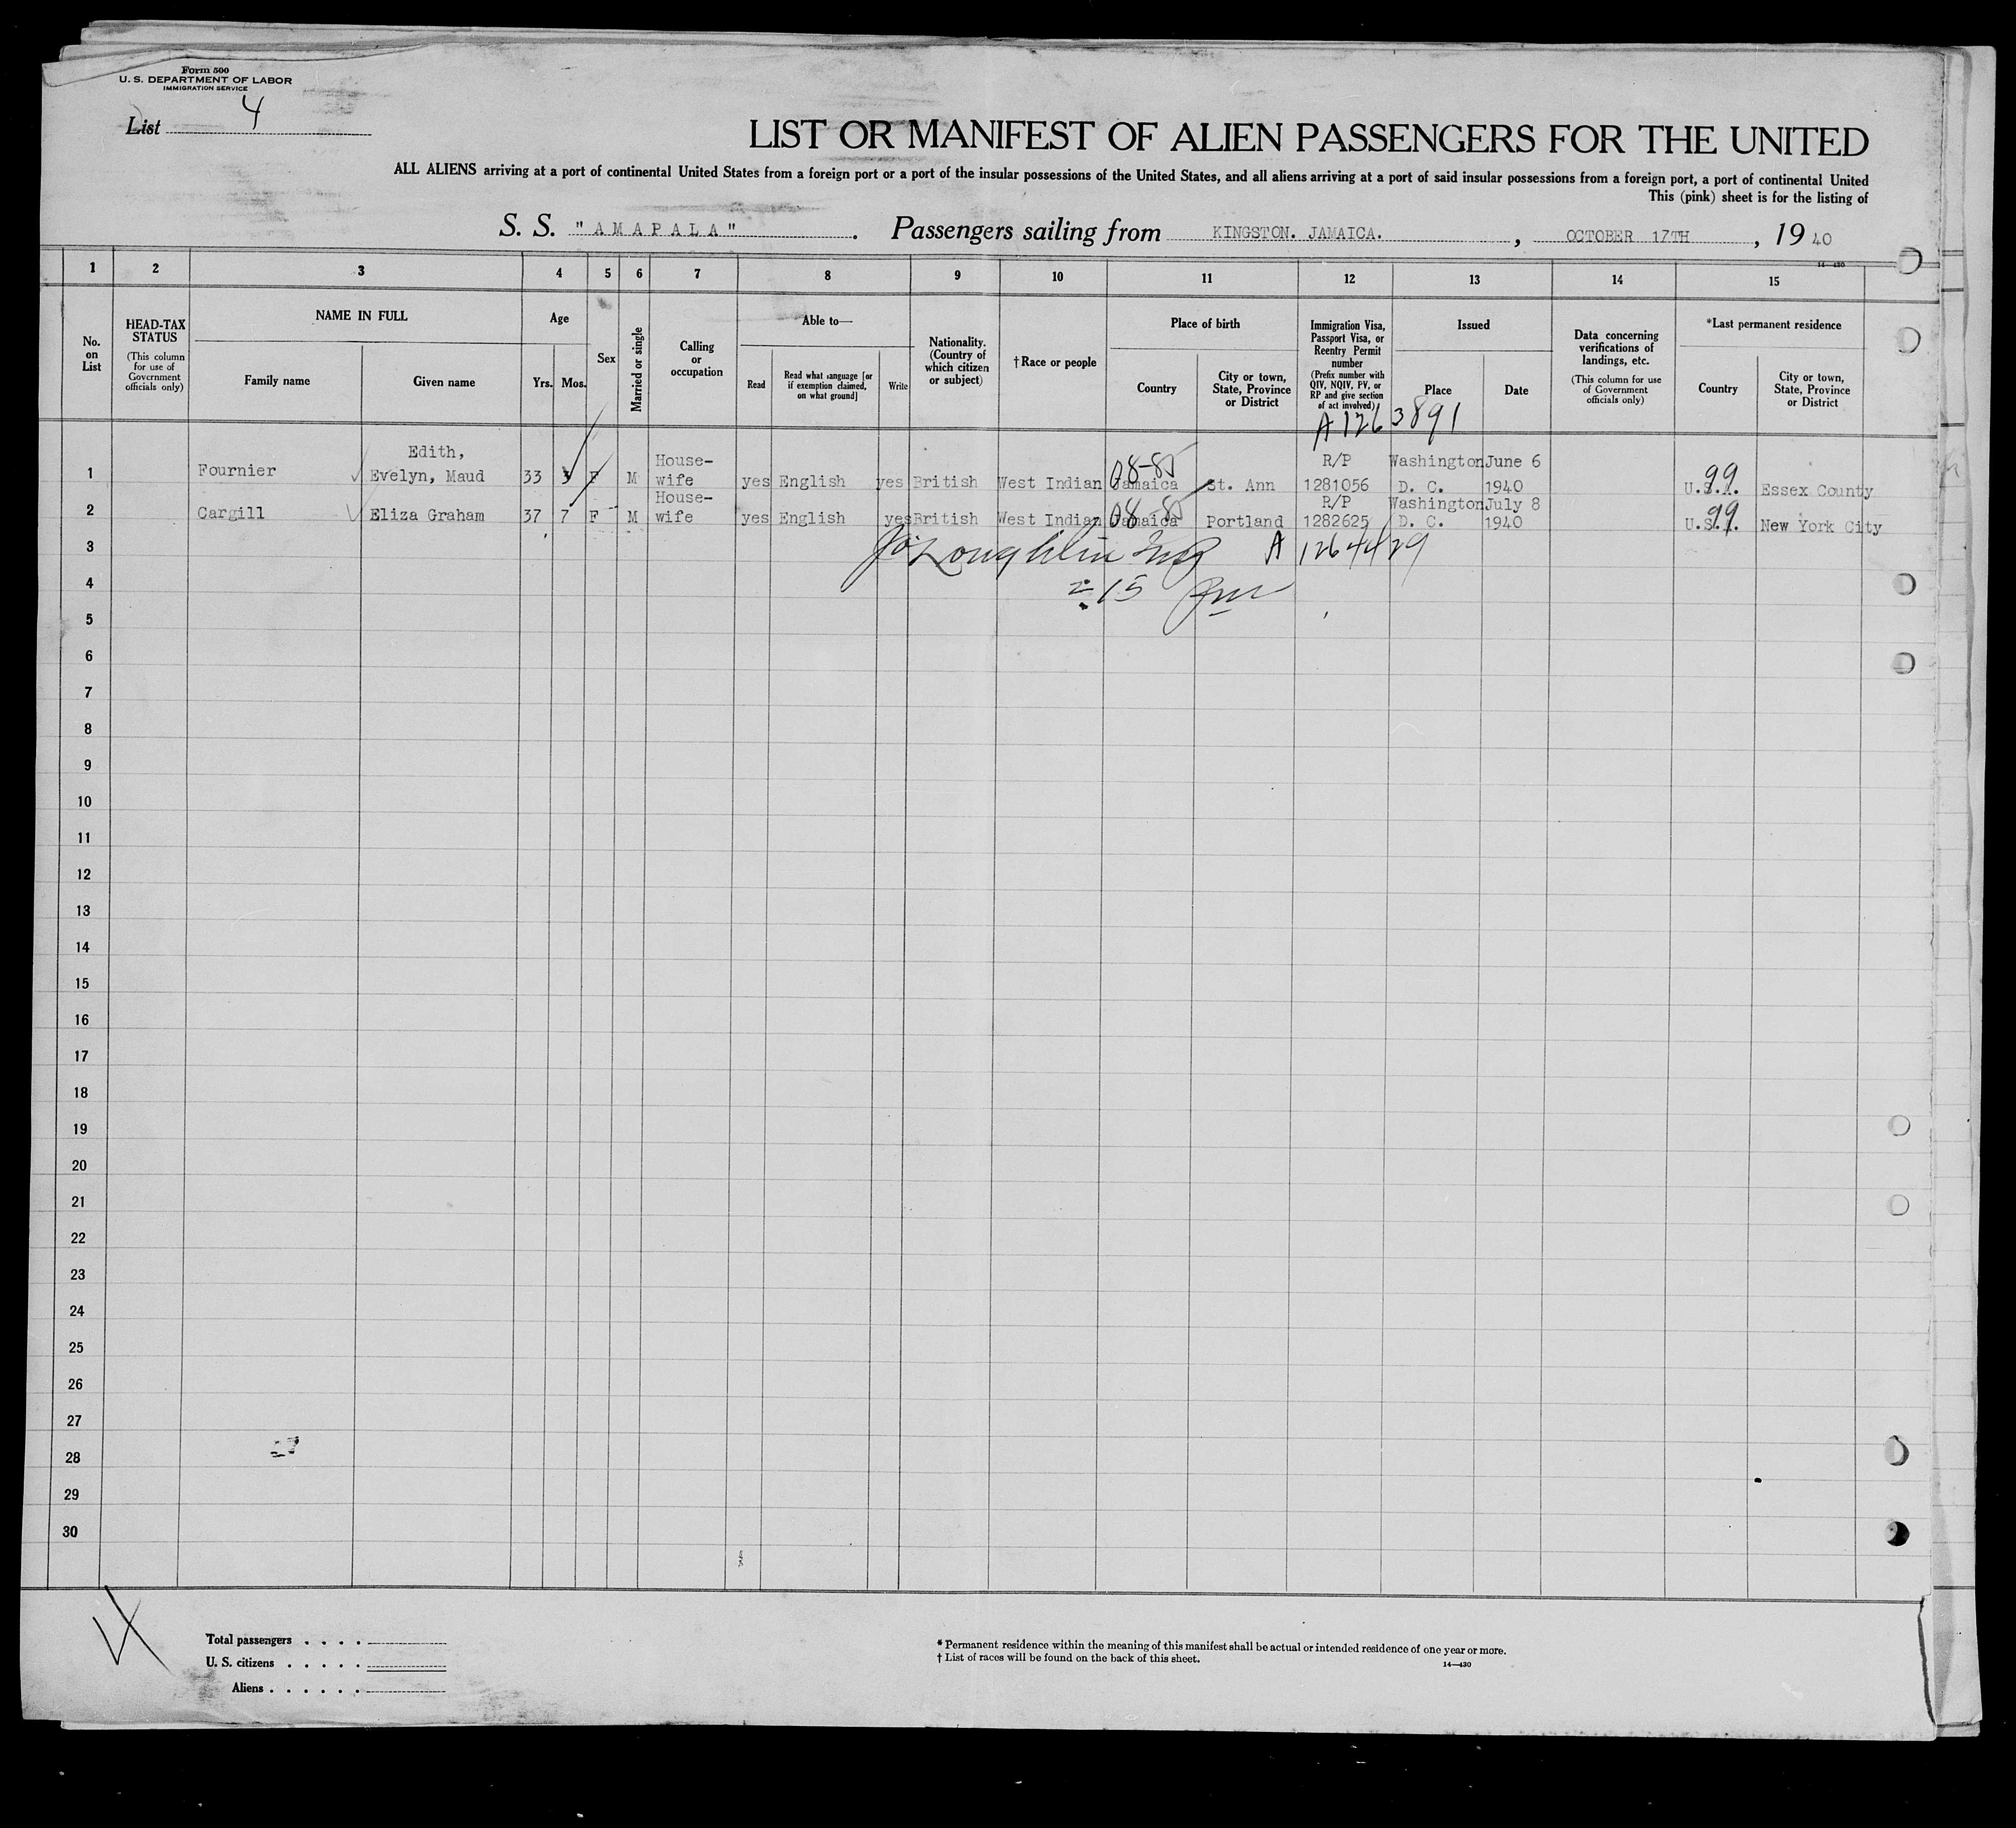 Form 500
U. S. DEPARTMENT OF LABOR
IMMIGRATION SERVICE
List 4
LIST OR MANIFEST OF ALIEN PASSENGERS FOR THE UNITED
ALL ALIENS arriving at a port of continental United States from a foreign port or a port of the insular possessions of the United States, and all aliens arriving at a port of said insular possessions from a foreign port, a port of continental United
This (pink) sheet is for the listing of
S. S. "AMAPALA". Passengers sailing from KINGSTON. JAMAICA., OCTOBER 17TH, 1940
14—430
1 2 3 4 5 6 7 8 9 10 11 12 13 14 15
No. on List
HEAD-TAX STATUS
(This column for use of Government officials only)
NAME IN FULL
Family name
Given name
Age
Yrs. Mos.
Sex
Married or single
Calling or occupation
Able to—
Read
Read what language [or if exemption claimed, on what ground]
Write
Nationality. (Country of which citizen or subject)
†Race or people
Place of birth
Country
City or town, State, Province or District
Immigration Visa, Passport Visa, or Reentry Permit number
(Prefix number with QIV, NQIV, PV, or RP and give section of act involved)
Issued
Place
Date
Data concerning verifications of landings, etc.
(This column for use of Government officials only)
*Last permanent residence
Country
City or town, State, Province or District
A1263891
1 Fournier Edith, Evelyn, Maud 33 3 F M House-wife yes English yes British West Indian Jamaica 08-85 St. Ann R/P 1281056 Washington D. C. June 6 1940 U.S.A. 99 Essex County
2 Cargill Eliza Graham 37 7 F M House-wife yes English yes British West Indian Jamaica 08-85 Portland R/P 1282625 Washington D. C. July 8 1940 U.S.A. 99 New York City
3 A 1264429
4
5
6
7
8
9
10
11
12
13
14
15
16
17
18
19
20
21
22
23
24
25
26
27
28
29
30
4
Total passengers . . . .
U. S. citizens . . . . .
Aliens . . . . . .
* Permanent residence within the meaning of this manifest shall be actual or intended residence of one year or more.
† List of races will be found on the back of this sheet.
14—430